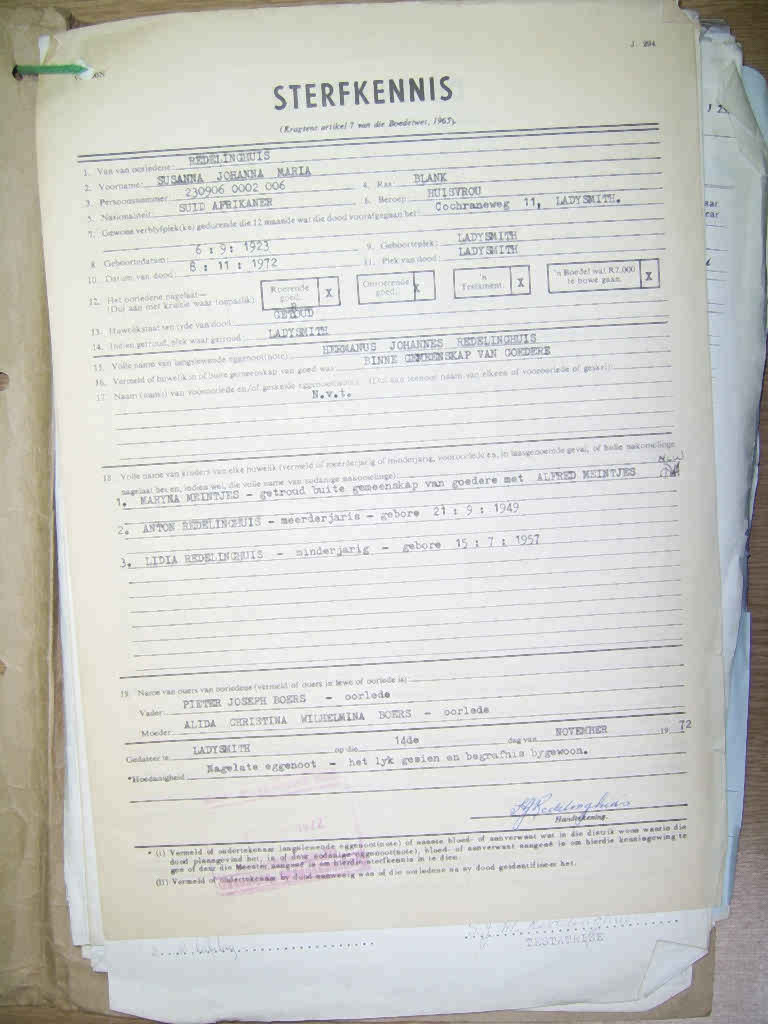 J. 294
STERFKENNIS
(Kragtens artikel 7 van die Boedelwet, 1965).
1. Van van oorledene: REDELINGHUIS
2. Voorname: SUSANNA JOHANNA MARIA
3. Persoonsnommer 230906 0002 006 4. Ras: BLANK
5. Nasionaliteit: SUID AFRIKANER 6. Beroep: HUISVROU
7. Gewone verblyfplek(ke) gedurende die 12 maande wat die dood voorafgegaan het: Cochraneweg 11, LADYSMITH.
8. Geboortedatum: 6 : 9 : 1923 9. Geboorteplek: LADYSMITH
10. Datum van dood: 8 : 11 : 1972 11. Plek van dood: LADYSMITH
12. Het oorledene nagelaat—
(Dui aan met kruisie waar toepaslik)
Roerende goed. X
Onroerende goed. X
'n Testament. X
'n Boedel wat R7,000 te bowe gaan. X
13. Huwelikstaat ten tyde van dood: GETROUD
14. Indien getroud, plek waar getroud: LADYSMITH
15. Volle name van langslewende eggenoot(note): HERMANUS JOHANNES REDELINGHUIS
16. Vermeld of huwelik in of buite gemeenskap van goed was: BINNE GEMEENSKAP VAN GOEDERE
17. Naam (name) van vooroorlede en/of geskeide eggenoot(note). (Dui aan teenoor naam van elkeen of vooroorlede of geskei):
N.v.t.
18. Volle name van kinders van elke huwelik (vermeld of meerderjarig of minderjarig, vooroorlede en, in laasgenoemde geval, of hulle nakomelinge
nagelaat het en, indien wel, die volle name van sodanige nakomelinge):
1. MARYNA MEINTJES - getroud buite gemeenskap van goedere met ALFRED MEINTJES
2. ANTON REDELINGHUIS - meerderjaris - gebore 21 : 9 : 1949
3. LIDIA REDELINGHUIS - minderjarig - gebore 15 : 7 : 1957
19. Name van ouers van oorledene (vermeld of ouers in lewe of oorlede is):
Vader: PIETER JOSEPH BOERS - oorlede
Moeder: ALIDA CHRISTINA WILHELMINA BOERS - oorlede
Gedateer te LADYSMITH op die 14de dag van NOVEMBER 19 72
*Hoedanigheid Nagelate eggenoot - het lyk gesien en begrafnis bygewoon.
Handtekening.
* (i) Vermeld of ondertekenaar langslewende eggenoot(note) of naaste bloed- of aanverwant wat in die distrik woon waarin die
dood plaasgevind het, is of deur sodanige eggenoot(note), bloed- of aanverwant aangesê is om hierdie kennisgewing te
gee of deur die Meester aangesê is om hierdie sterfkennis in te dien.
(ii) Vermeld of ondertekenaar by dood aanwesig was of die oorledene na sy dood geïdentifiseer het.
TESTATRISE